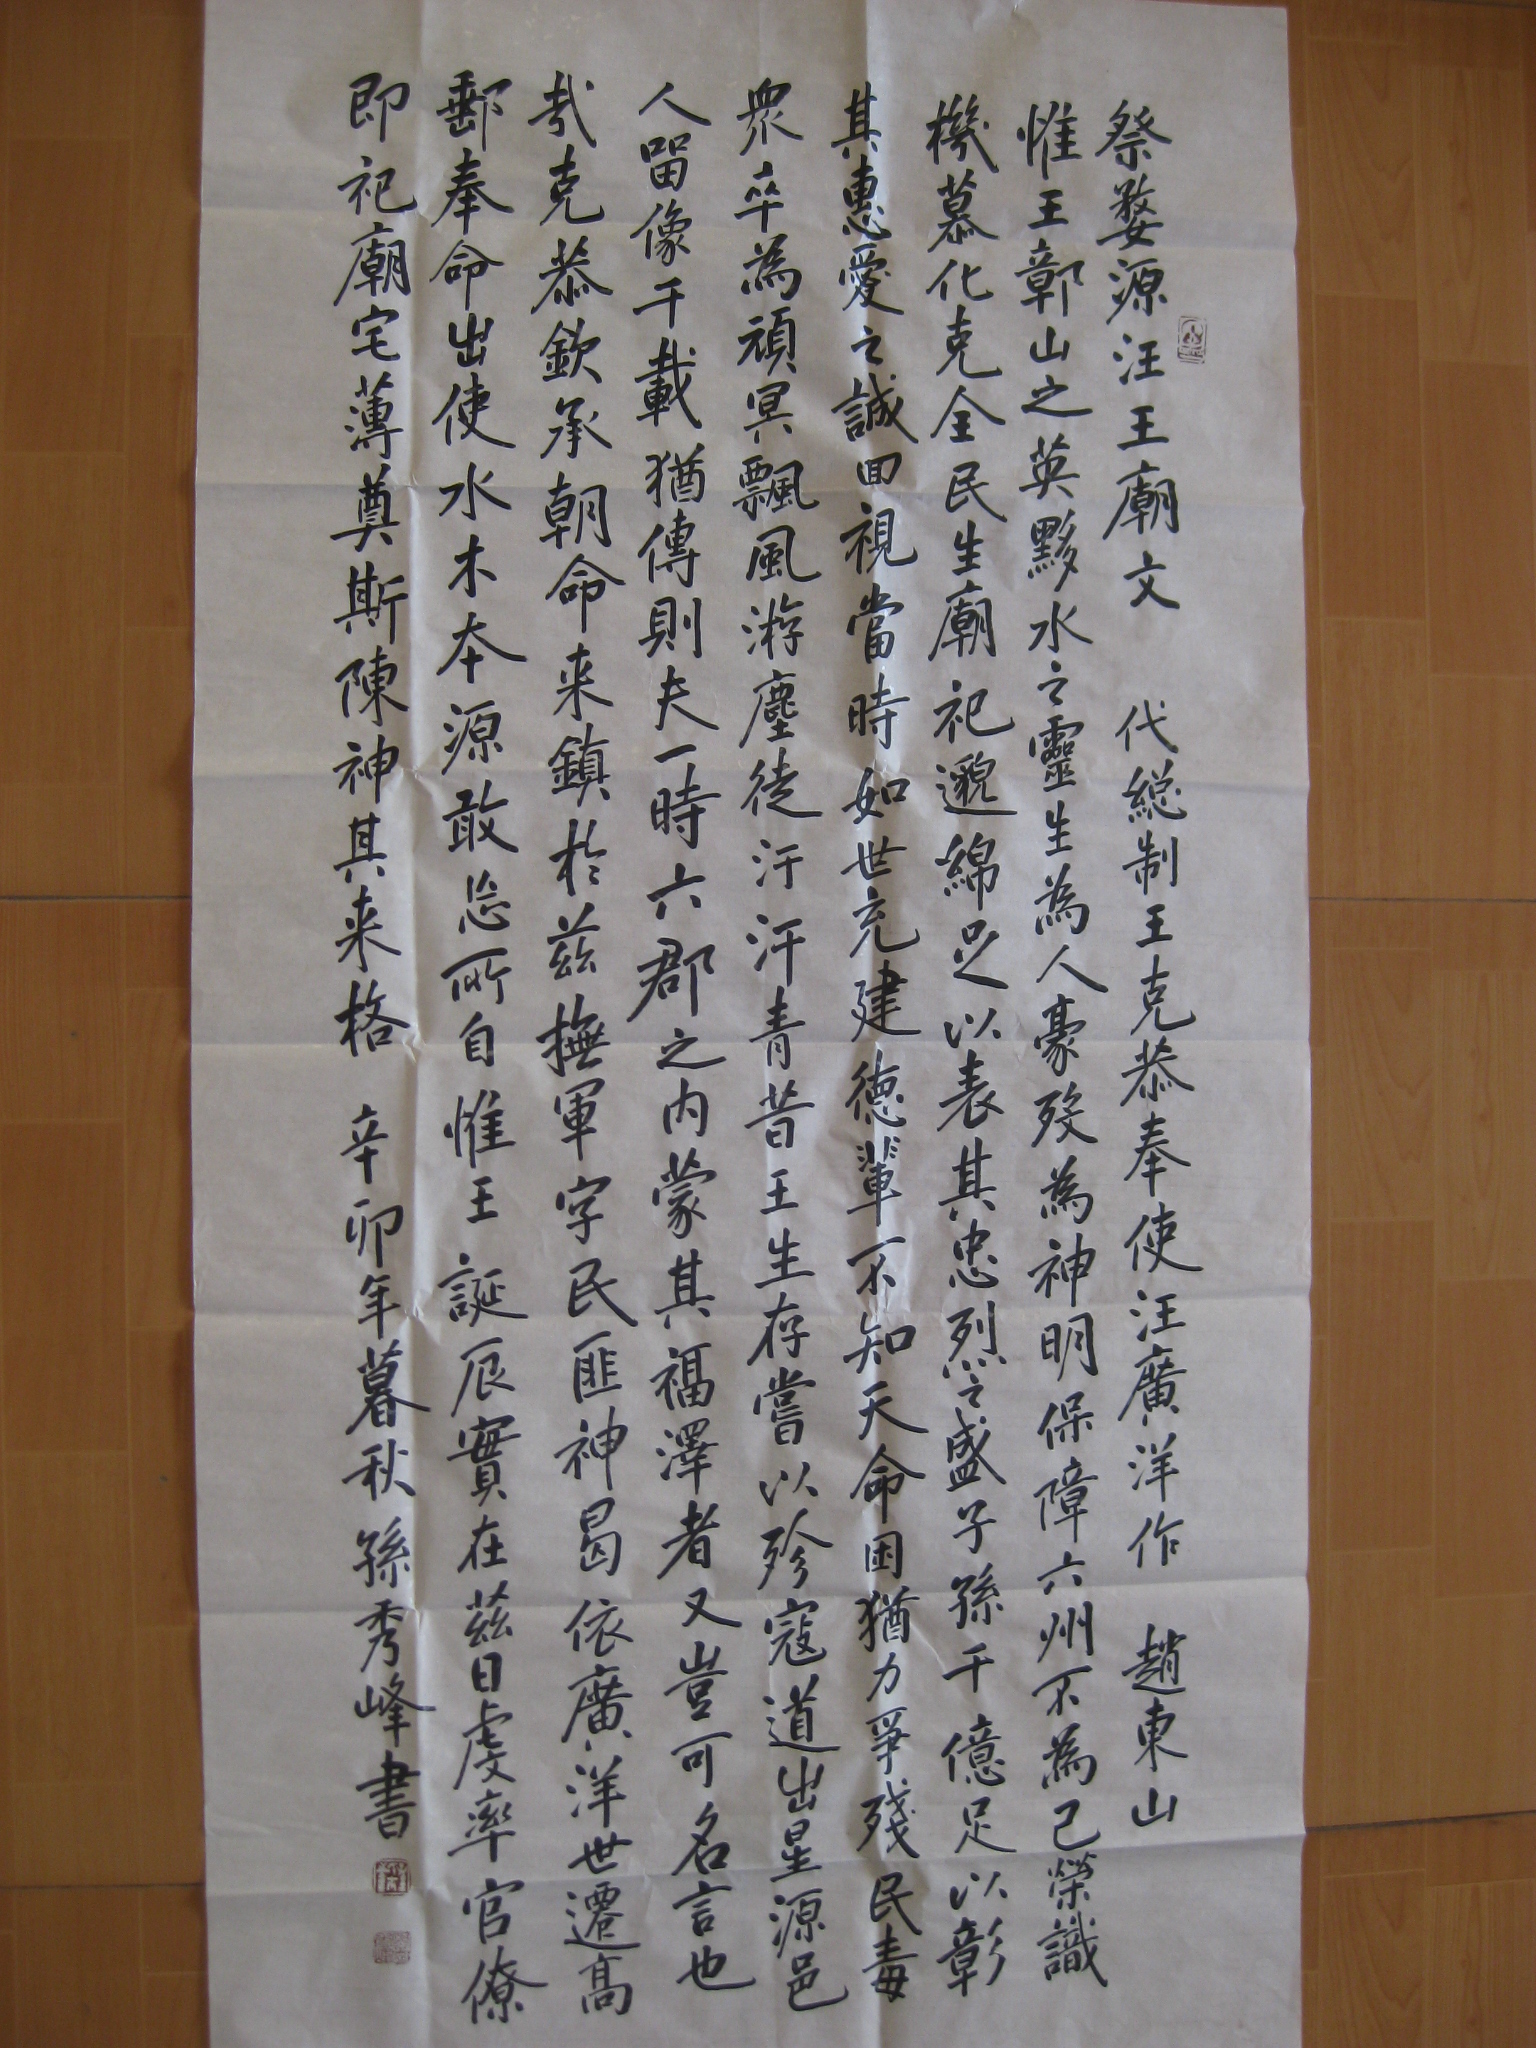 祭婺源汪王廟文 代總制王克恭奉使汪廣洋作 趙東山
惟王鄣山之英黟水之靈生為人豪歿為神明保障六州不為己榮識
機慕化克全民生廟祀邈綿足以表其忠烈之盛子孫千億足以彰
其惠愛之誠回視當時如世充建德輩不知天命困猶力爭殘民毒
眾卒為頑冥飄風游塵徒汙汗青昔王生存嘗以殄寇道出星源邑
人留像千載猶傳則夫一時六郡之內蒙其福澤者又豈可名言也
哉克恭欽承朝命来鎮於茲撫軍字民匪神曷依廣洋世遷高
郵奉命出使水木本源敢忘所自惟王誕辰實在茲日虔率官僚
即祀廟宅薄奠斯陳神其来格 辛卯年暮秋孫秀峰書